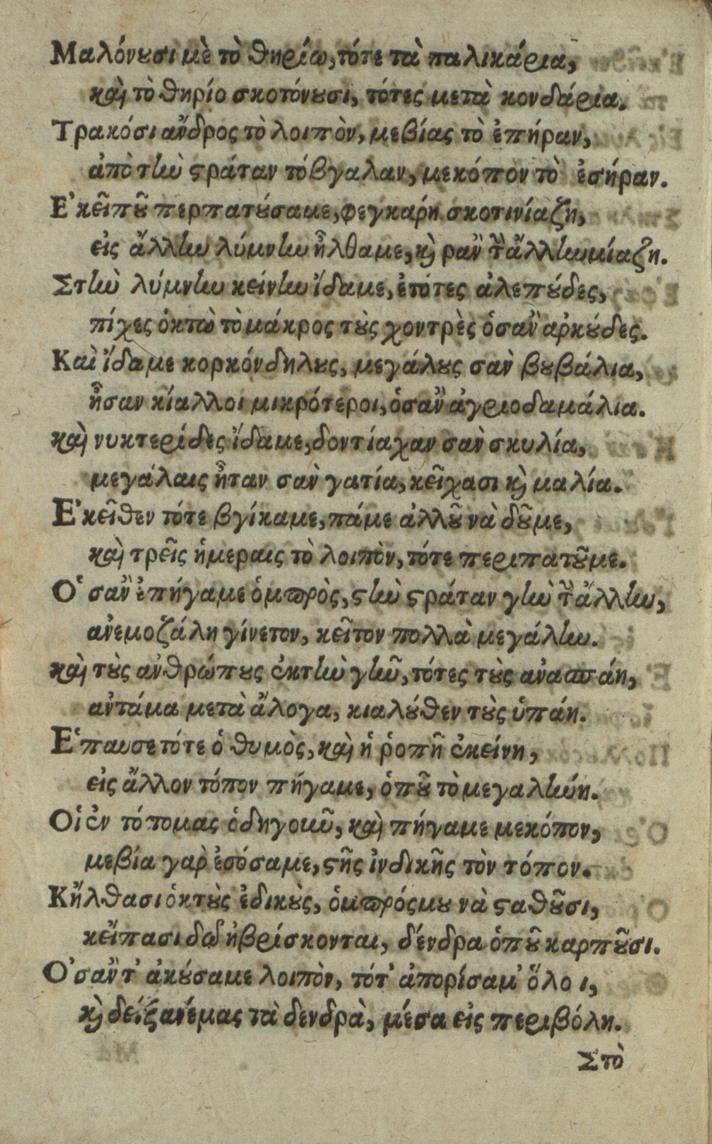 Μαλόνουσι μὲ τὸ θηρίω, τότε τὰ παλικάρια,
καὶ τὸ θηρίο σκοτόνουσι, τότες μετὰ κονδάρια.
Τρακόσι ἄνδρος τὸ λοιπὸν, μεβίας τὸ ἐπήραν,
ἀπὸ τὴν στράταν τόβγαλαν, μεκόπον τὸ ἐσήραν.
Ἐκεῖποῦ περπατούσαμε, φεγκάρη σκοτινίαζη,
εἰς ἄλλην λύμνην ἦλθαμε, καὶ ραν τ̔ ἄλλην μίαζη.
Στὴν λύμνην κείνην ἴδαμε, ἐτότες ἀλεπούδες,
πίχες ὀκτὼ τὸ μάκρος τοὺς χοντρὲς ὁσὰν ἀρκούδες.
Καὶ ἴδαμε κορκόνδηλους, μεγάλους σαν βουβάλια,
ἦσαν κίαλλοι μικρότεροι, ὁσὰν ἀγριοδαμάλια.
καὶ νυκτερίδες ἴδαμε, δοντίαχαν σαν σκυλία,
μεγάλαις ἦταν σαν γατία, κεῖχασι καὶ μαλία.
Ἐκεῖθεν τότε βγίκαμε, πάμε ἀλλοῦ νὰ δοῦμε,
καὶ τρεῖς ἡμεραις τὸ λοιπὸν, τότε περιπατοῦμε.
Ὁσὰν ἐπήγαμε ὀμπρὸς, στὴν στράταν γὴν τ̔ ἄλλην,
ἀνεμοζάλη γίνετον, κεῖτον πολλὰ μεγάλην.
καὶ τοὺς ἀνθρώπους ἐκτὴν γῆν, τότες τοὺς ἀνασπάη,
ἀντάμα μετὰ ἄλογα, κιαλούθεν τοὺς ὑπάη.
Ἔπαυσε τότε ὁ θυμὸς, καὶ ἡ ῥοπῆ ἐκείνη,
εἰς ἄλλον τόπον πήγαμε, ὁποῦ τὸ μεγαλύνη.
Οἱ ἐν τότομας ὁδηγοὶ, καὶ πήγαμε μεκόπον,
μεβία γαρ ἐσόσαμε, στῆς ἰνδικῆς τὸν τόπον.
Κῆλθασι ὀκτοὺς ἐδικοὺς, ὀμπρόςμου νὰ σταθοῦσι,
κεῖπασι δω ἠβρίσκονται, δένδρα ὁποῦ καρποῦσι.
Ὁσὰν τ' ἀκούσαμε λοιπὸν, τότ' ἀπορίσαμ' ὅλοι,
καὶ δείξανέμας τὰ δενδρὰ, μέσα εἰς περιβόλη.
Στὸ